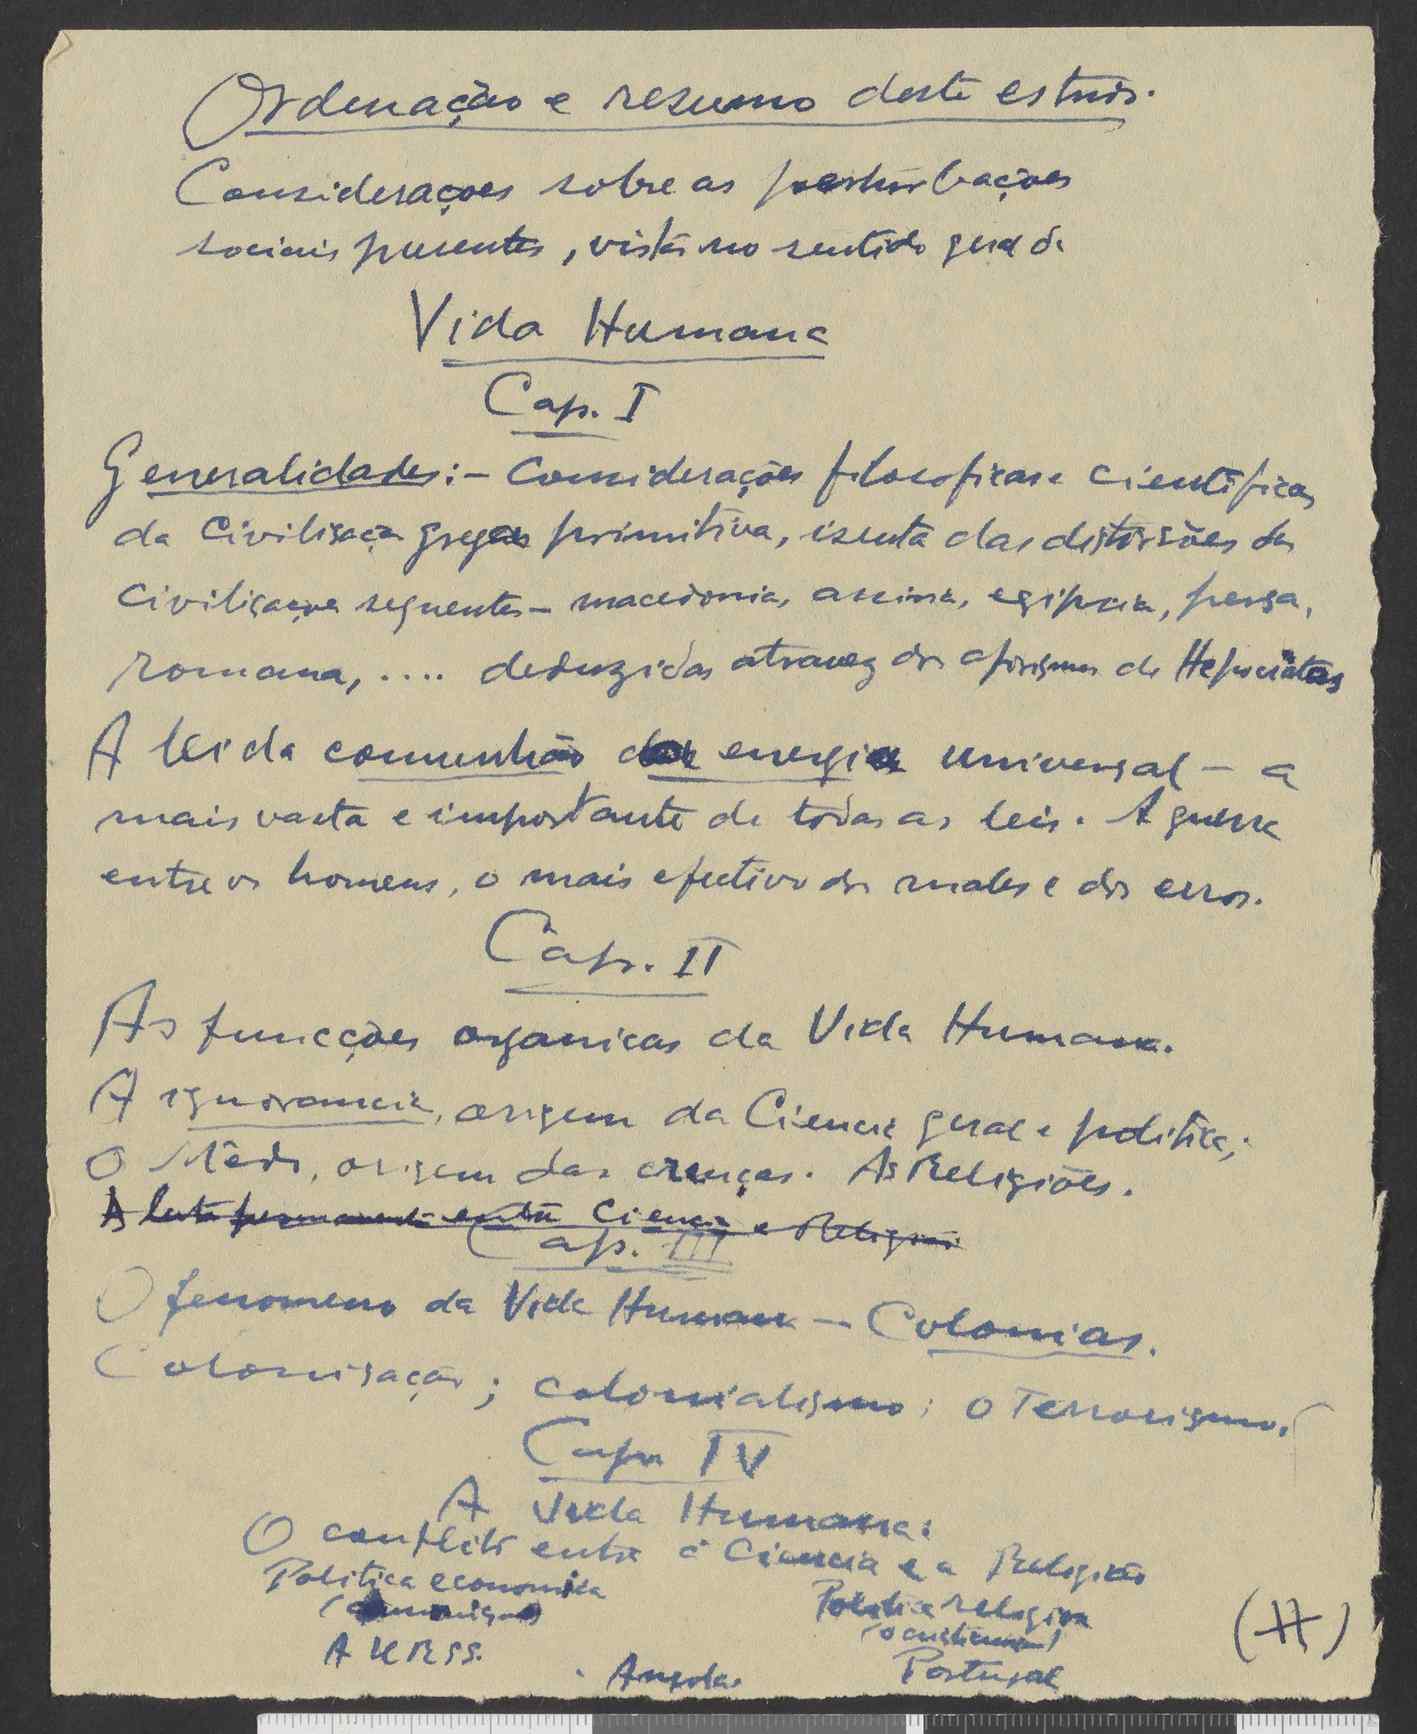 Ordenação e resumo deste estudo.
Considerações sobre as perturbações
sociais presentes, vistas no sentido geral da
Vida Humana
Cap. I
Generalidades:- Considerações filosoficas e cientificas
da Civilisação grega primitiva, isenta das distorsões das
civilisações seguentes - macedonia, assiria, egipcia, persa,
romana, .... deduzidas atravez dos aforismos de Hepocrates
A lei da comunhão da energia universal - a
mais vasta e importante de todas as leis. A guerra
entre os homens, o mais efectivo dos males e dos erros.
Cap. II
As funcções organicas da Vida Humana.
A ignorancia, origem da Ciencia geral e politica;
O Mêdo, origem das crenças. As Religiões.
A luta permanente entre Ciencia e Religião
Cap. III
O fenomeno da Vida Humana - Colonias.
Colonisação; colonialismo; o Terrorismo.
Cap. IV
A Vida Humana:
O conflito entre a Ciencia e a Religião
Politica economica Politica religiosa
(comunismo) (o cristianismo)
A URSS. Portugal
. Angola.
(H)